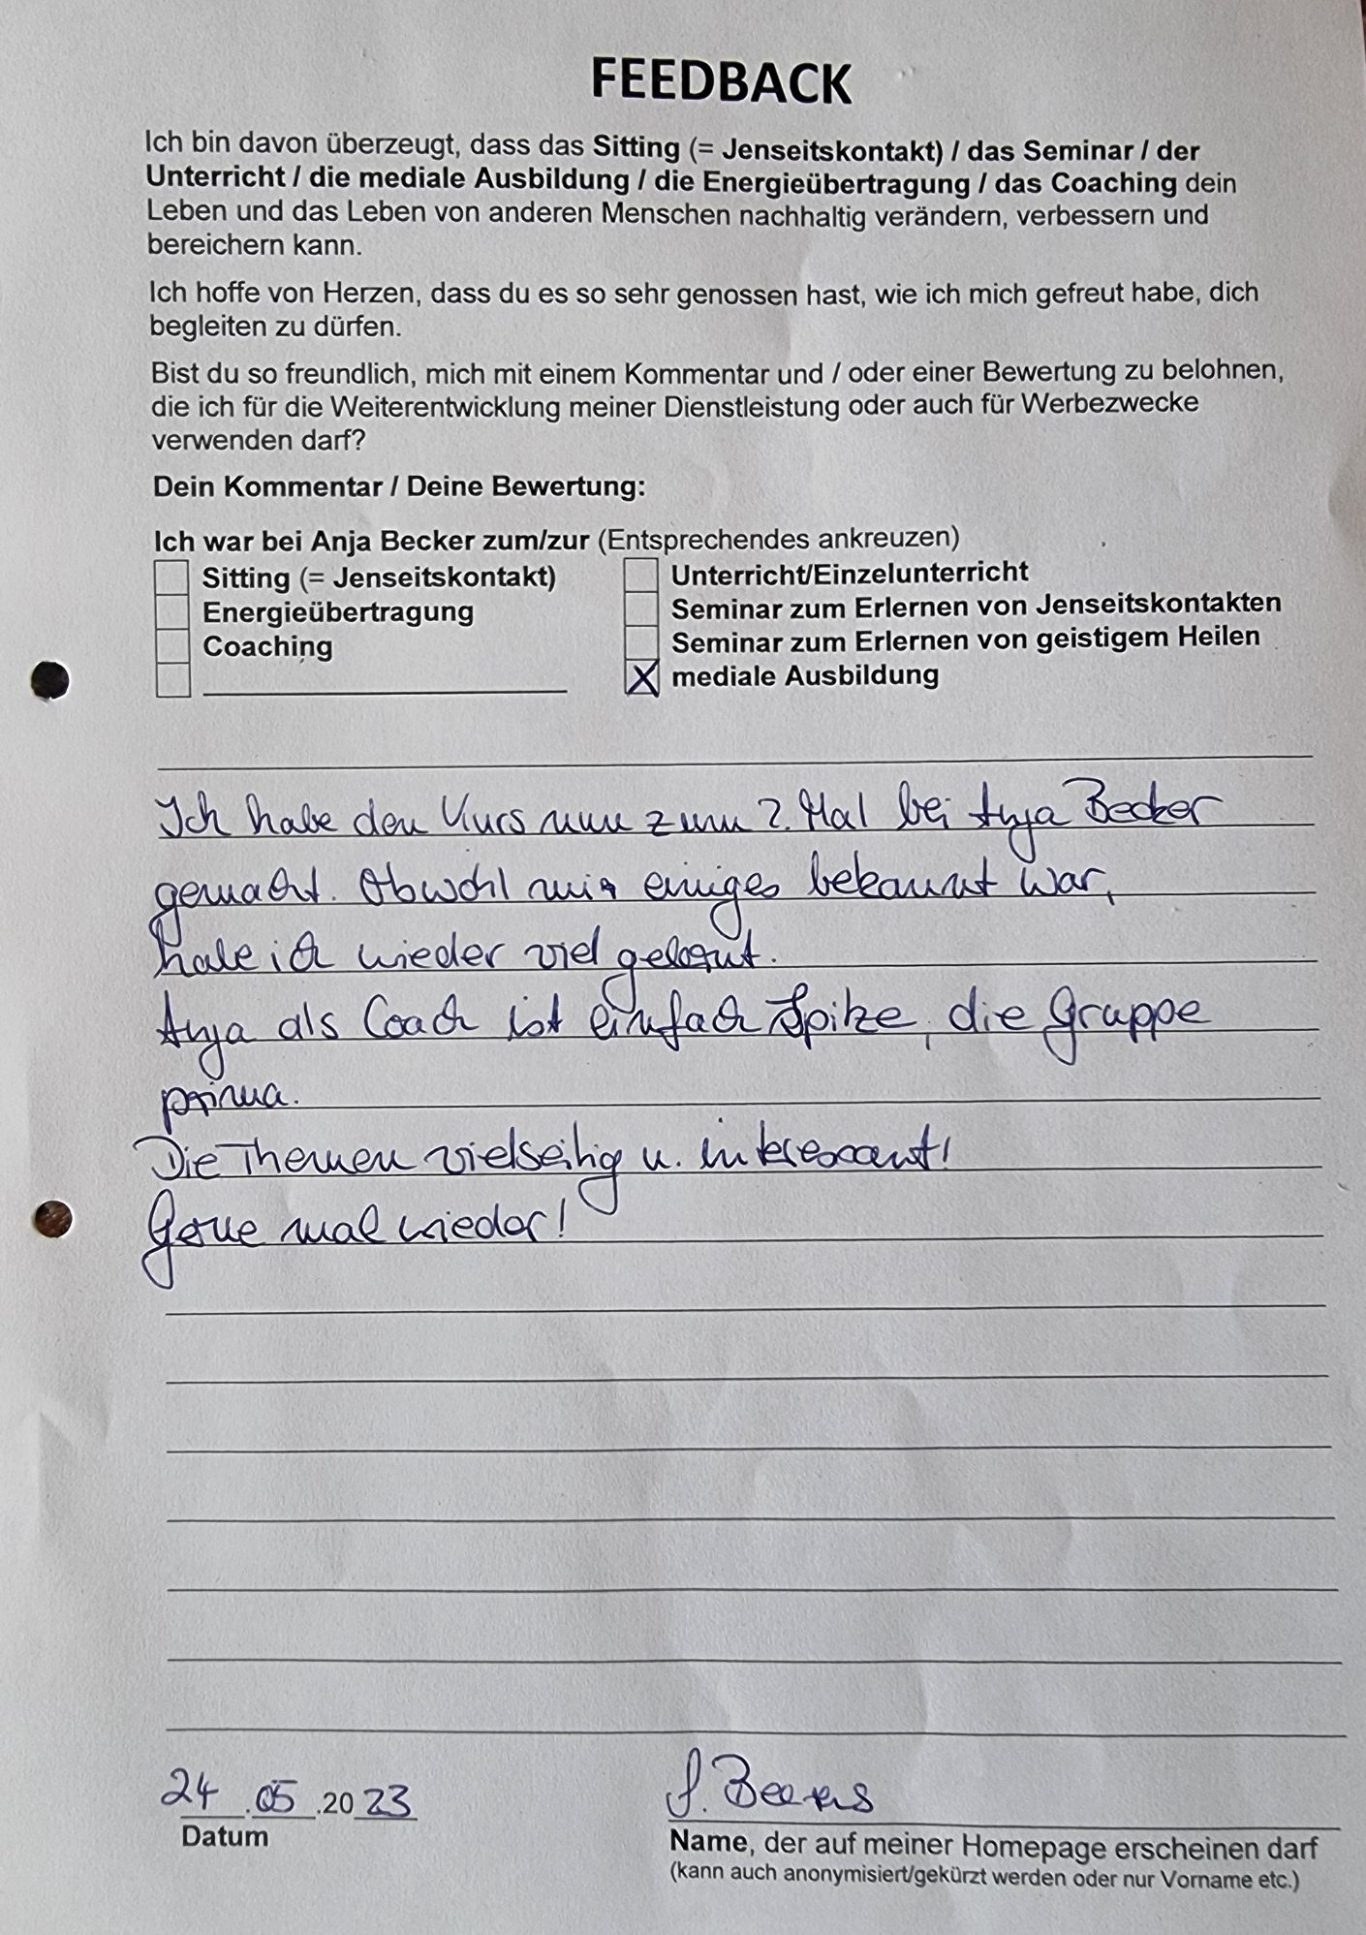 FEEDBACK
Ich bin davon überzeugt, dass das Sitting (= Jenseitskontakt) / das Seminar / der
Unterricht / die mediale Ausbildung / die Energieübertragung / das Coaching dein
Leben und das Leben von anderen Menschen nachhaltig verändern, verbessern und
bereichern kann.
Ich hoffe von Herzen, dass du es so sehr genossen hast, wie ich mich gefreut habe, dich
begleiten zu dürfen.
Bist du so freundlich, mich mit einem Kommentar und / oder einer Bewertung zu belohnen,
die ich für die Weiterentwicklung meiner Dienstleistung oder auch für Werbezwecke
verwenden darf?
Dein Kommentar / Deine Bewertung:
Ich war bei Anja Becker zum/zur (Entsprechendes ankreuzen)
Sitting (= Jenseitskontakt)
Energieübertragung
Coaching
Unterricht/Einzelunterricht
Seminar zum Erlernen von Jenseitskontakten
Seminar zum Erlernen von geistigem Heilen
X mediale Ausbildung
Ich habe den Kurs nun zum 2. Mal bei Anja Becker
gemacht. Obwohl mir einiges bekannt war,
habe ich wieder viel gelernt.
Anja als Coach ist einfach Spitze, die Gruppe
prima.
Die Themen vielseitig u. interessant!
Gerne mal wieder!
24.05.2023
Datum
S.
Name, der auf meiner Homepage erscheinen darf
(kann auch anonymisiert/gekürzt werden oder nur Vorname etc.)